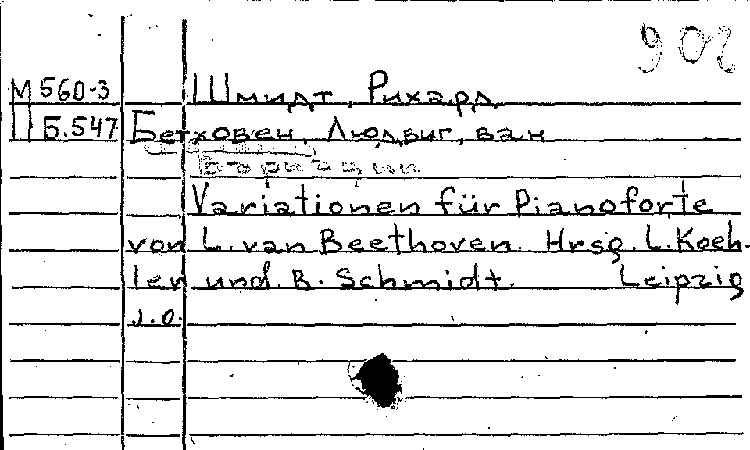 902
М 560-3 Шмидт, Рихард
П Б.547 Бетховен, Людвиг, ван
Вариации
Variationen für Pianoforte
von L. van Beethoven. Hrsg. L. Koeh-
ler und. R. Schmidt. Leipzig
s.a.